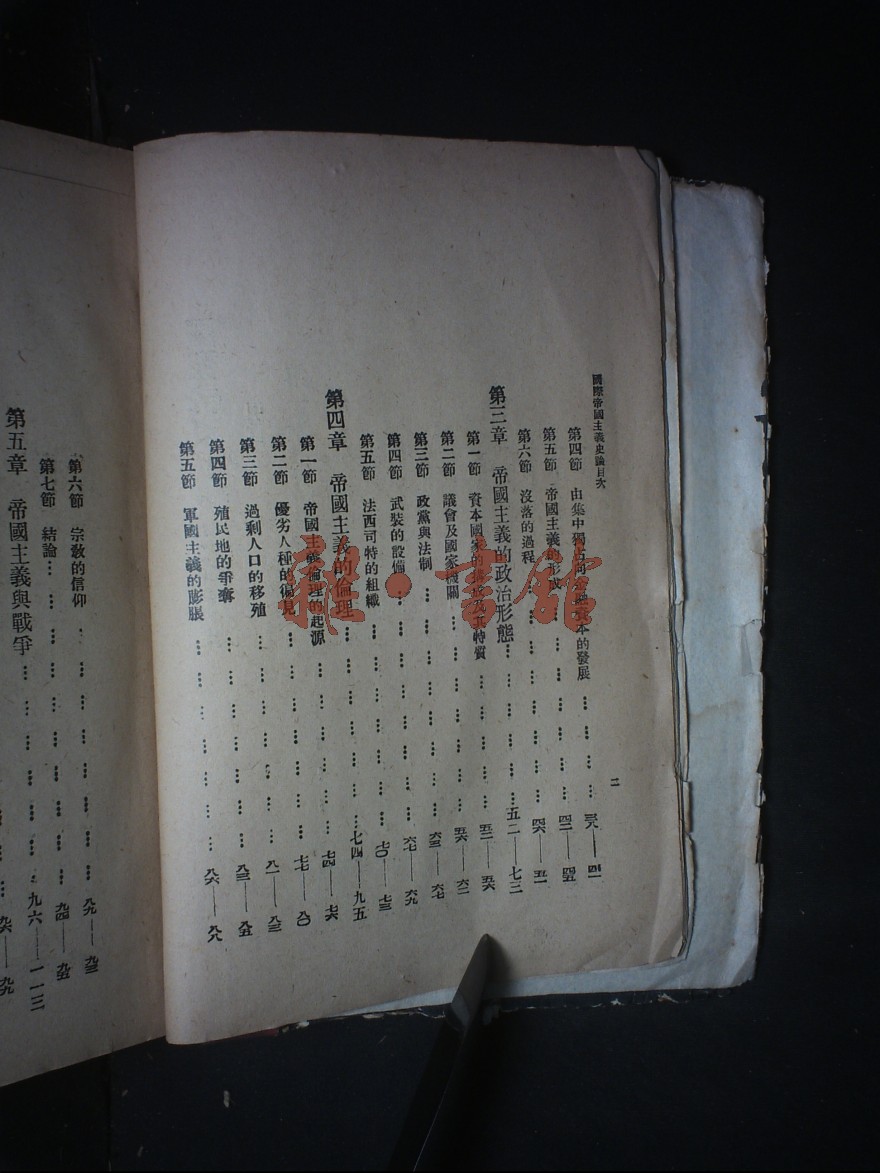 國際帝國主義史論目次
二
第四節 由集中獨占向金融資本的發展 三八——四一
第五節 帝國主義的形成 四二——四五
第六節 沒落的過程 四六——五一
第三章 帝國主義的政治形態 五二——七三
第一節 資本國家的構成及其特質 五二——五六
第二節 議會及國家機關 五六——六二
第三節 政黨與法制 六三——六七
第四節 武裝的設備 六七——六九
第五節 法西司特的組織 七〇——七三
第四章 帝國主義的倫理 七四——九五
第一節 帝國主義倫理的起源 七四——七六
第二節 優劣人種的偏見 七七——八〇
第三節 過剩人口的移殖 八一——八三
第四節 殖民地的爭奪 八三——八五
第五節 軍國主義的膨脹 八六——八八
第六節 宗教的信仰 八九——九三
第七節 結論 九四——九五
第五章 帝國主義與戰爭 九六——一一三
九六——九九
雜·書館